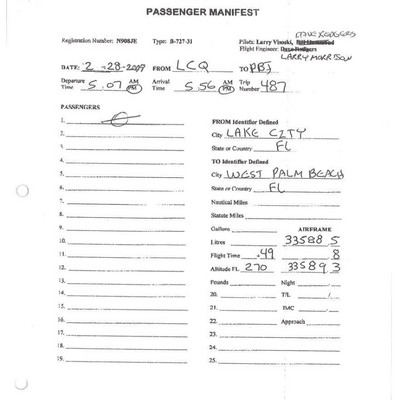 PASSENGER MANIFEST
DAVE RODGERS
Registration Number: N908JE Type: B-727-31 Pilots: Larry Visoski,
Flight Engineer: Dave Rodgers
LARRY MORRISON
DATE: 2-28-2009 FROM LCQ TO PBI
Departure Time 5:07 AM PM Arrival Time 5:56 AM PM Trip Number 487
PASSENGERS
1.
FROM Identifier Defined
2.
City LAKE CITY
3.
State or Country FL
4.
TO Identifier Defined
5.
City WEST PALM BEACH
6.
State or Country FL
7.
Nautical Miles
8.
Statute Miles
9.
Gallons AIRFRAME
10.
Litres 33588 5
11.
Flight Time .49 8
12.
Altitude FL 270 33589 3
13.
Pounds Night
14.
20. T/L /
15.
21. IMC /
16.
22. Approach
17.
23.
18.
24.
19.
25.